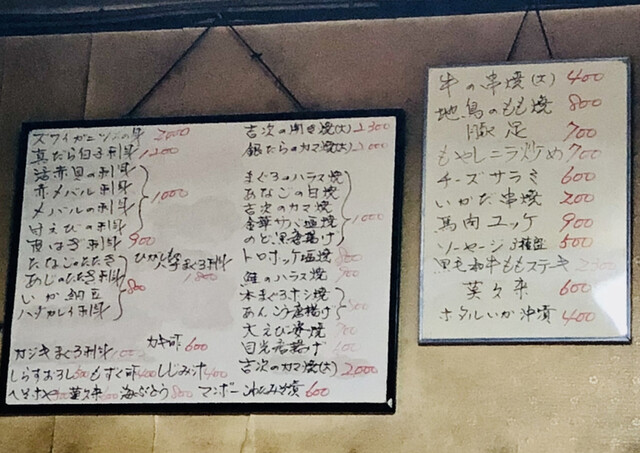 ズワイガニ 刺身 2000
真だら白子刺身 1200
活赤貝の刺身
赤メバル刺身
メバルの刺身
甘えびの刺身
1000
刺身 900
たなごのたたき
あじのたたき刺身
いか納豆
ハナガレイ刺身
800
ひがしもの
八千まぐろ刺身
1800
カジキまぐろ刺身
カキ酢 600
しらすおろし 500 もずく酢 400 しじみ汁 400
莫久来 海ぶどう 800 マンボーこわたみそ漬 600
吉次の開き焼(大) 2300
銀だらのカマ焼(大) 2000
まぐろのハラス焼
あなごの白焼
吉次のカマ焼
金華サバ塩焼
のど黒唐揚げ
1000
トロホッケ塩焼 800
鮭のハラス焼
本まぐろホシ焼
あんこう唐揚げ
大えび 焼
目光唐揚げ
吉次のカマ焼(大) 2000
牛の串焼(大) 400
地鳥のもも焼 800
豚足 700
もやしニラ炒め 700
チーズサラミ 600
いかだ串焼 200
馬肉ユッケ 900
ソーセージ3種盛 500
黒毛和牛ももステーキ 2300
莫久来 600
ホタルいか沖漬 400